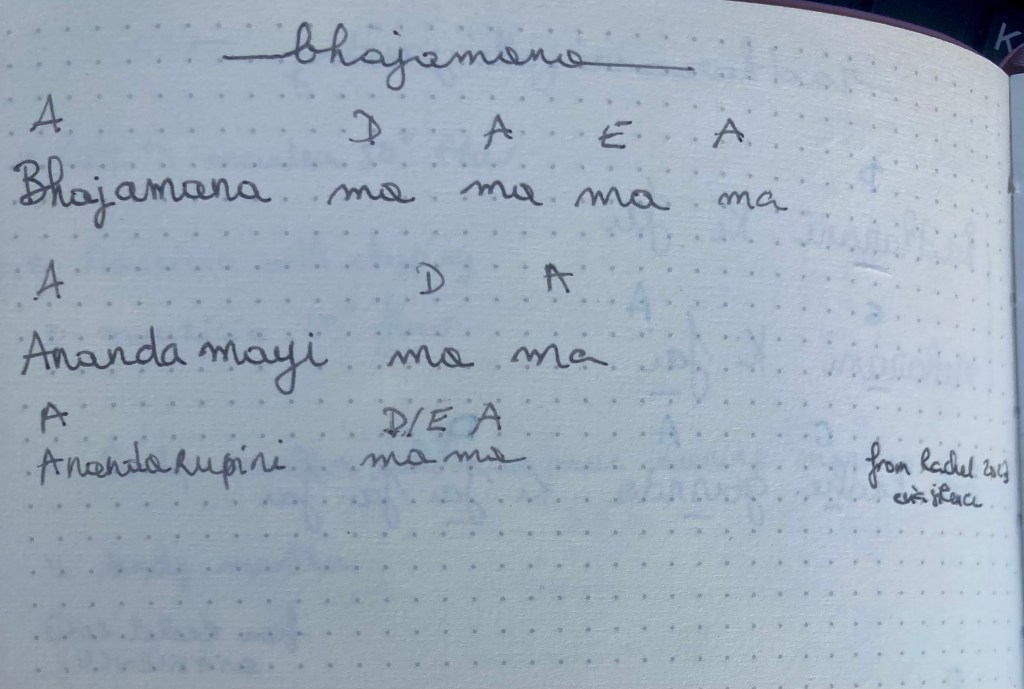 bhajamana
A D A E A
Bhajamana ma ma ma ma
A D A
Ananda mayi ma ma
A D/E A
Ananda Rupini ma ma
from Rachel
K